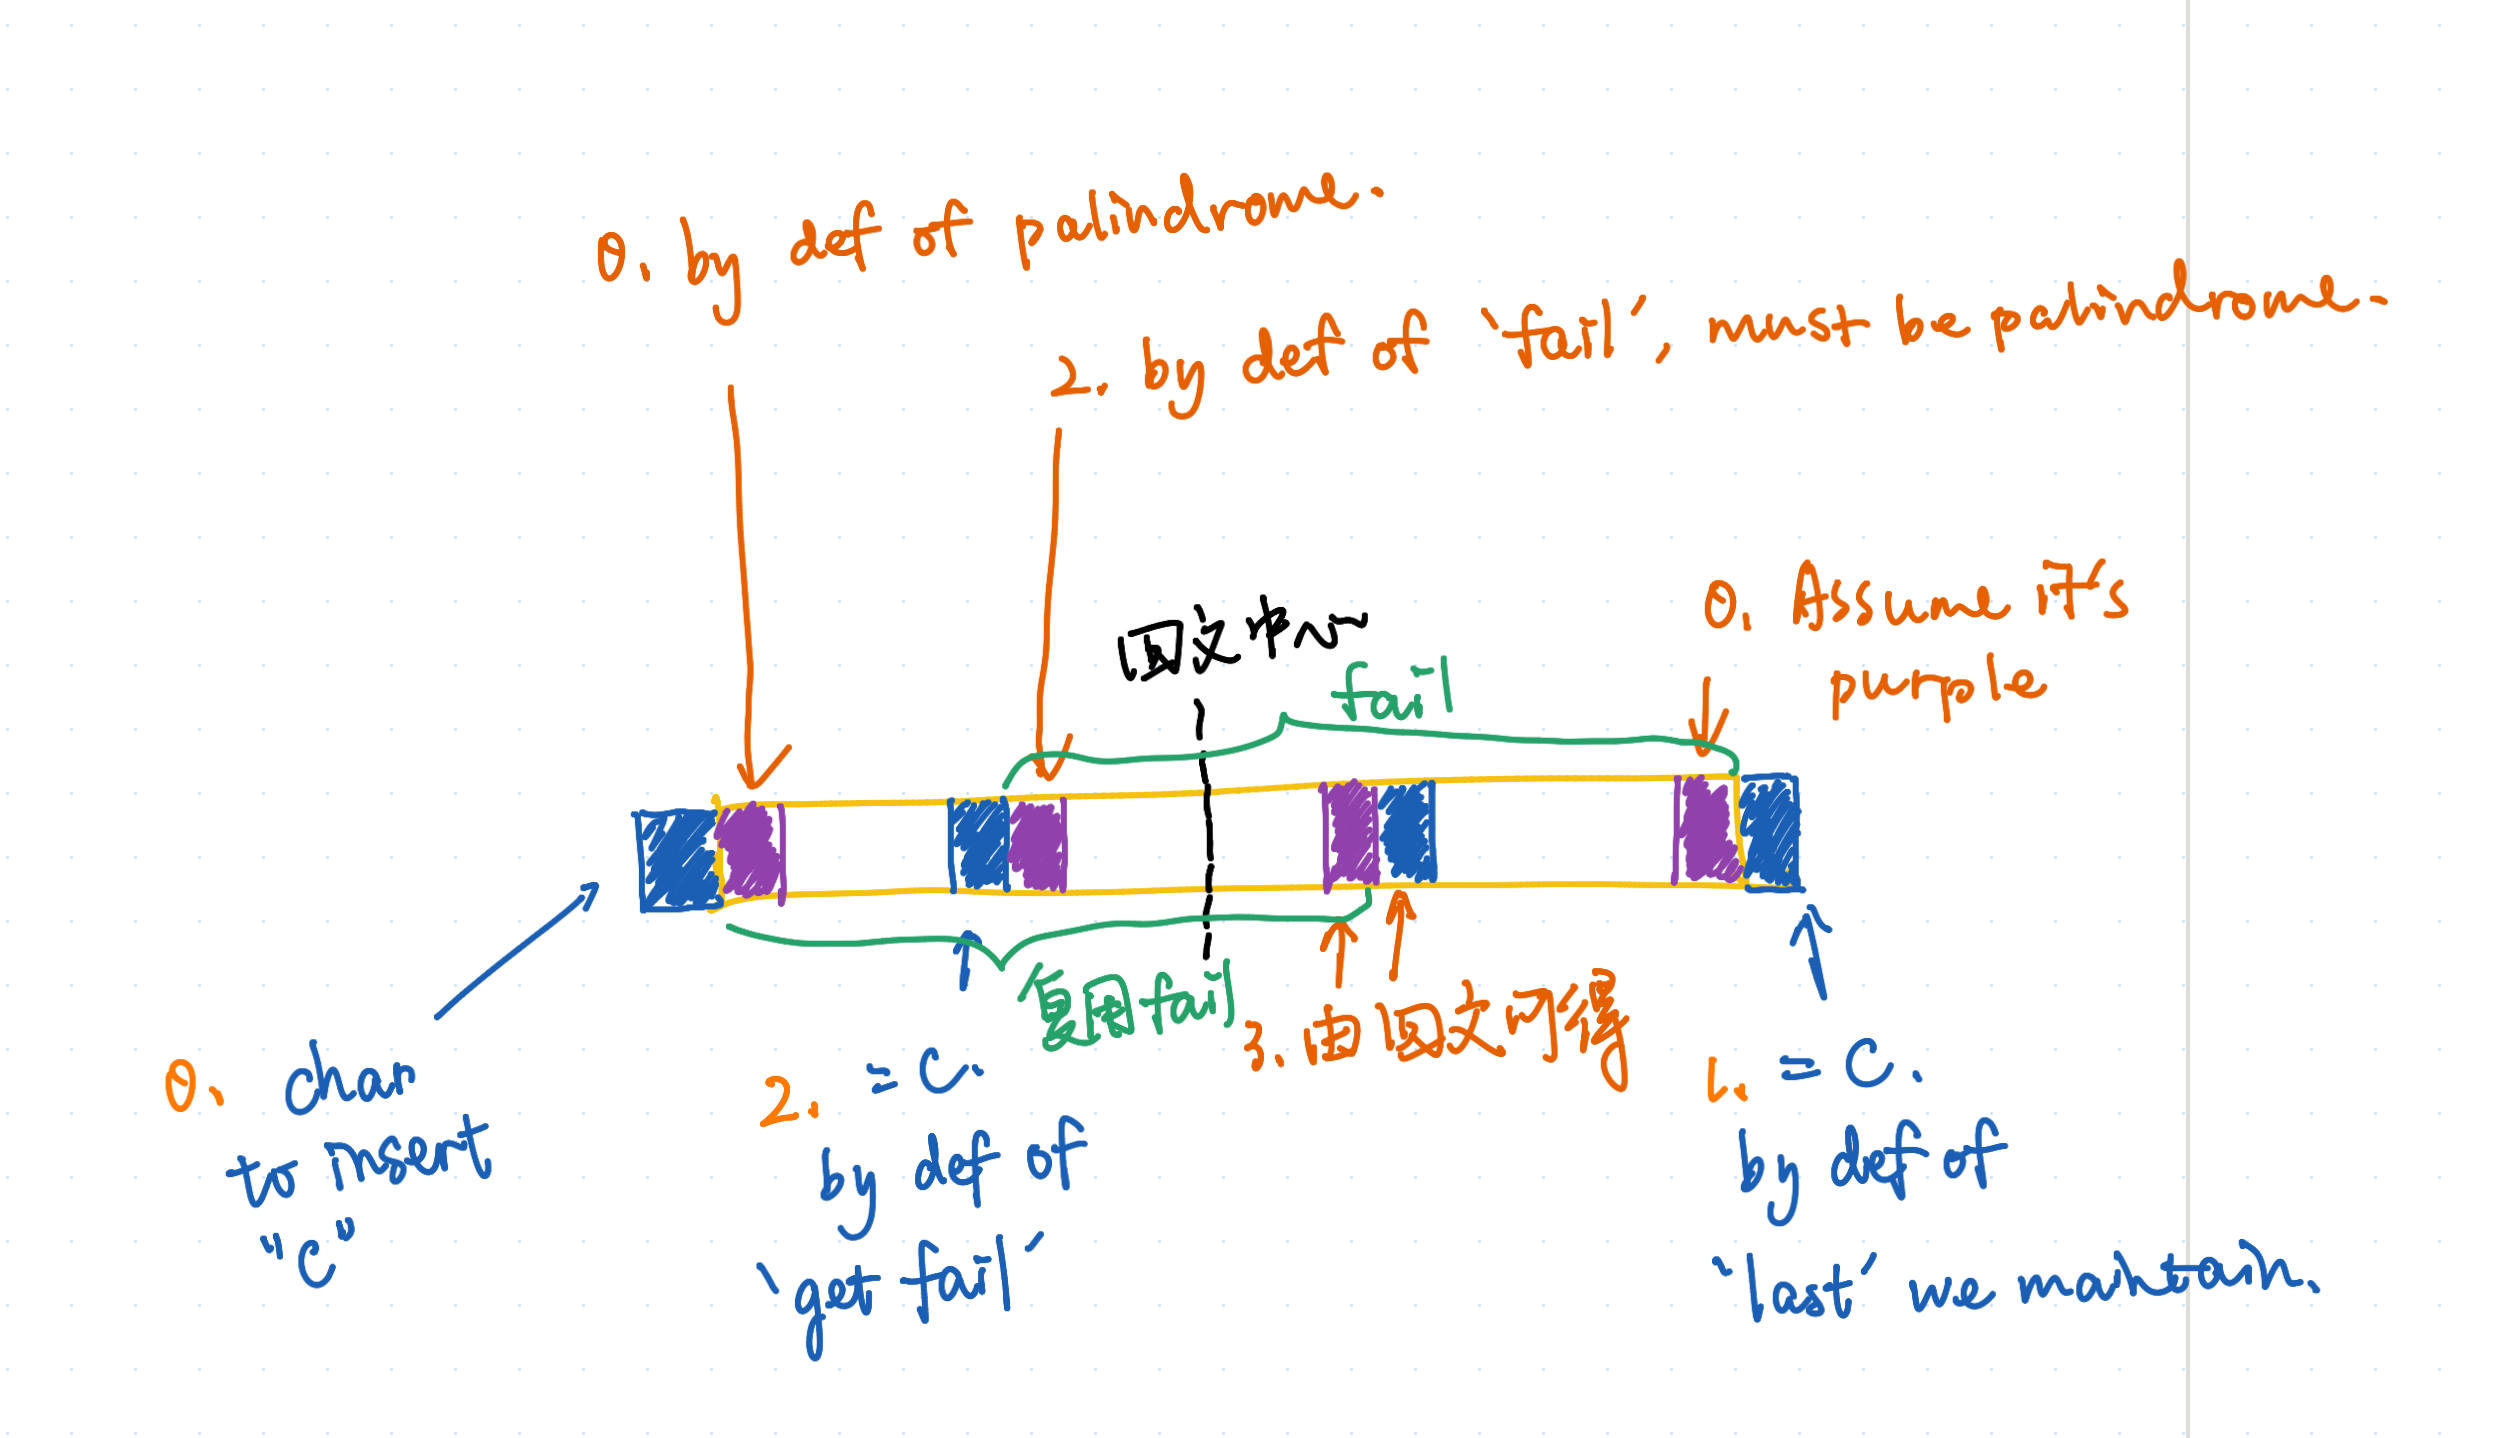 0. by def of palindrome.
2. by def of "fail", must be palindrome.
0. Assume it's
purple
回文中心
fail
复用fail
3. 由回文可得
0. char
to insert,
"c"
2. = C.
by def of
"get fail"
1. = C.
by def of
"last" we maintain.